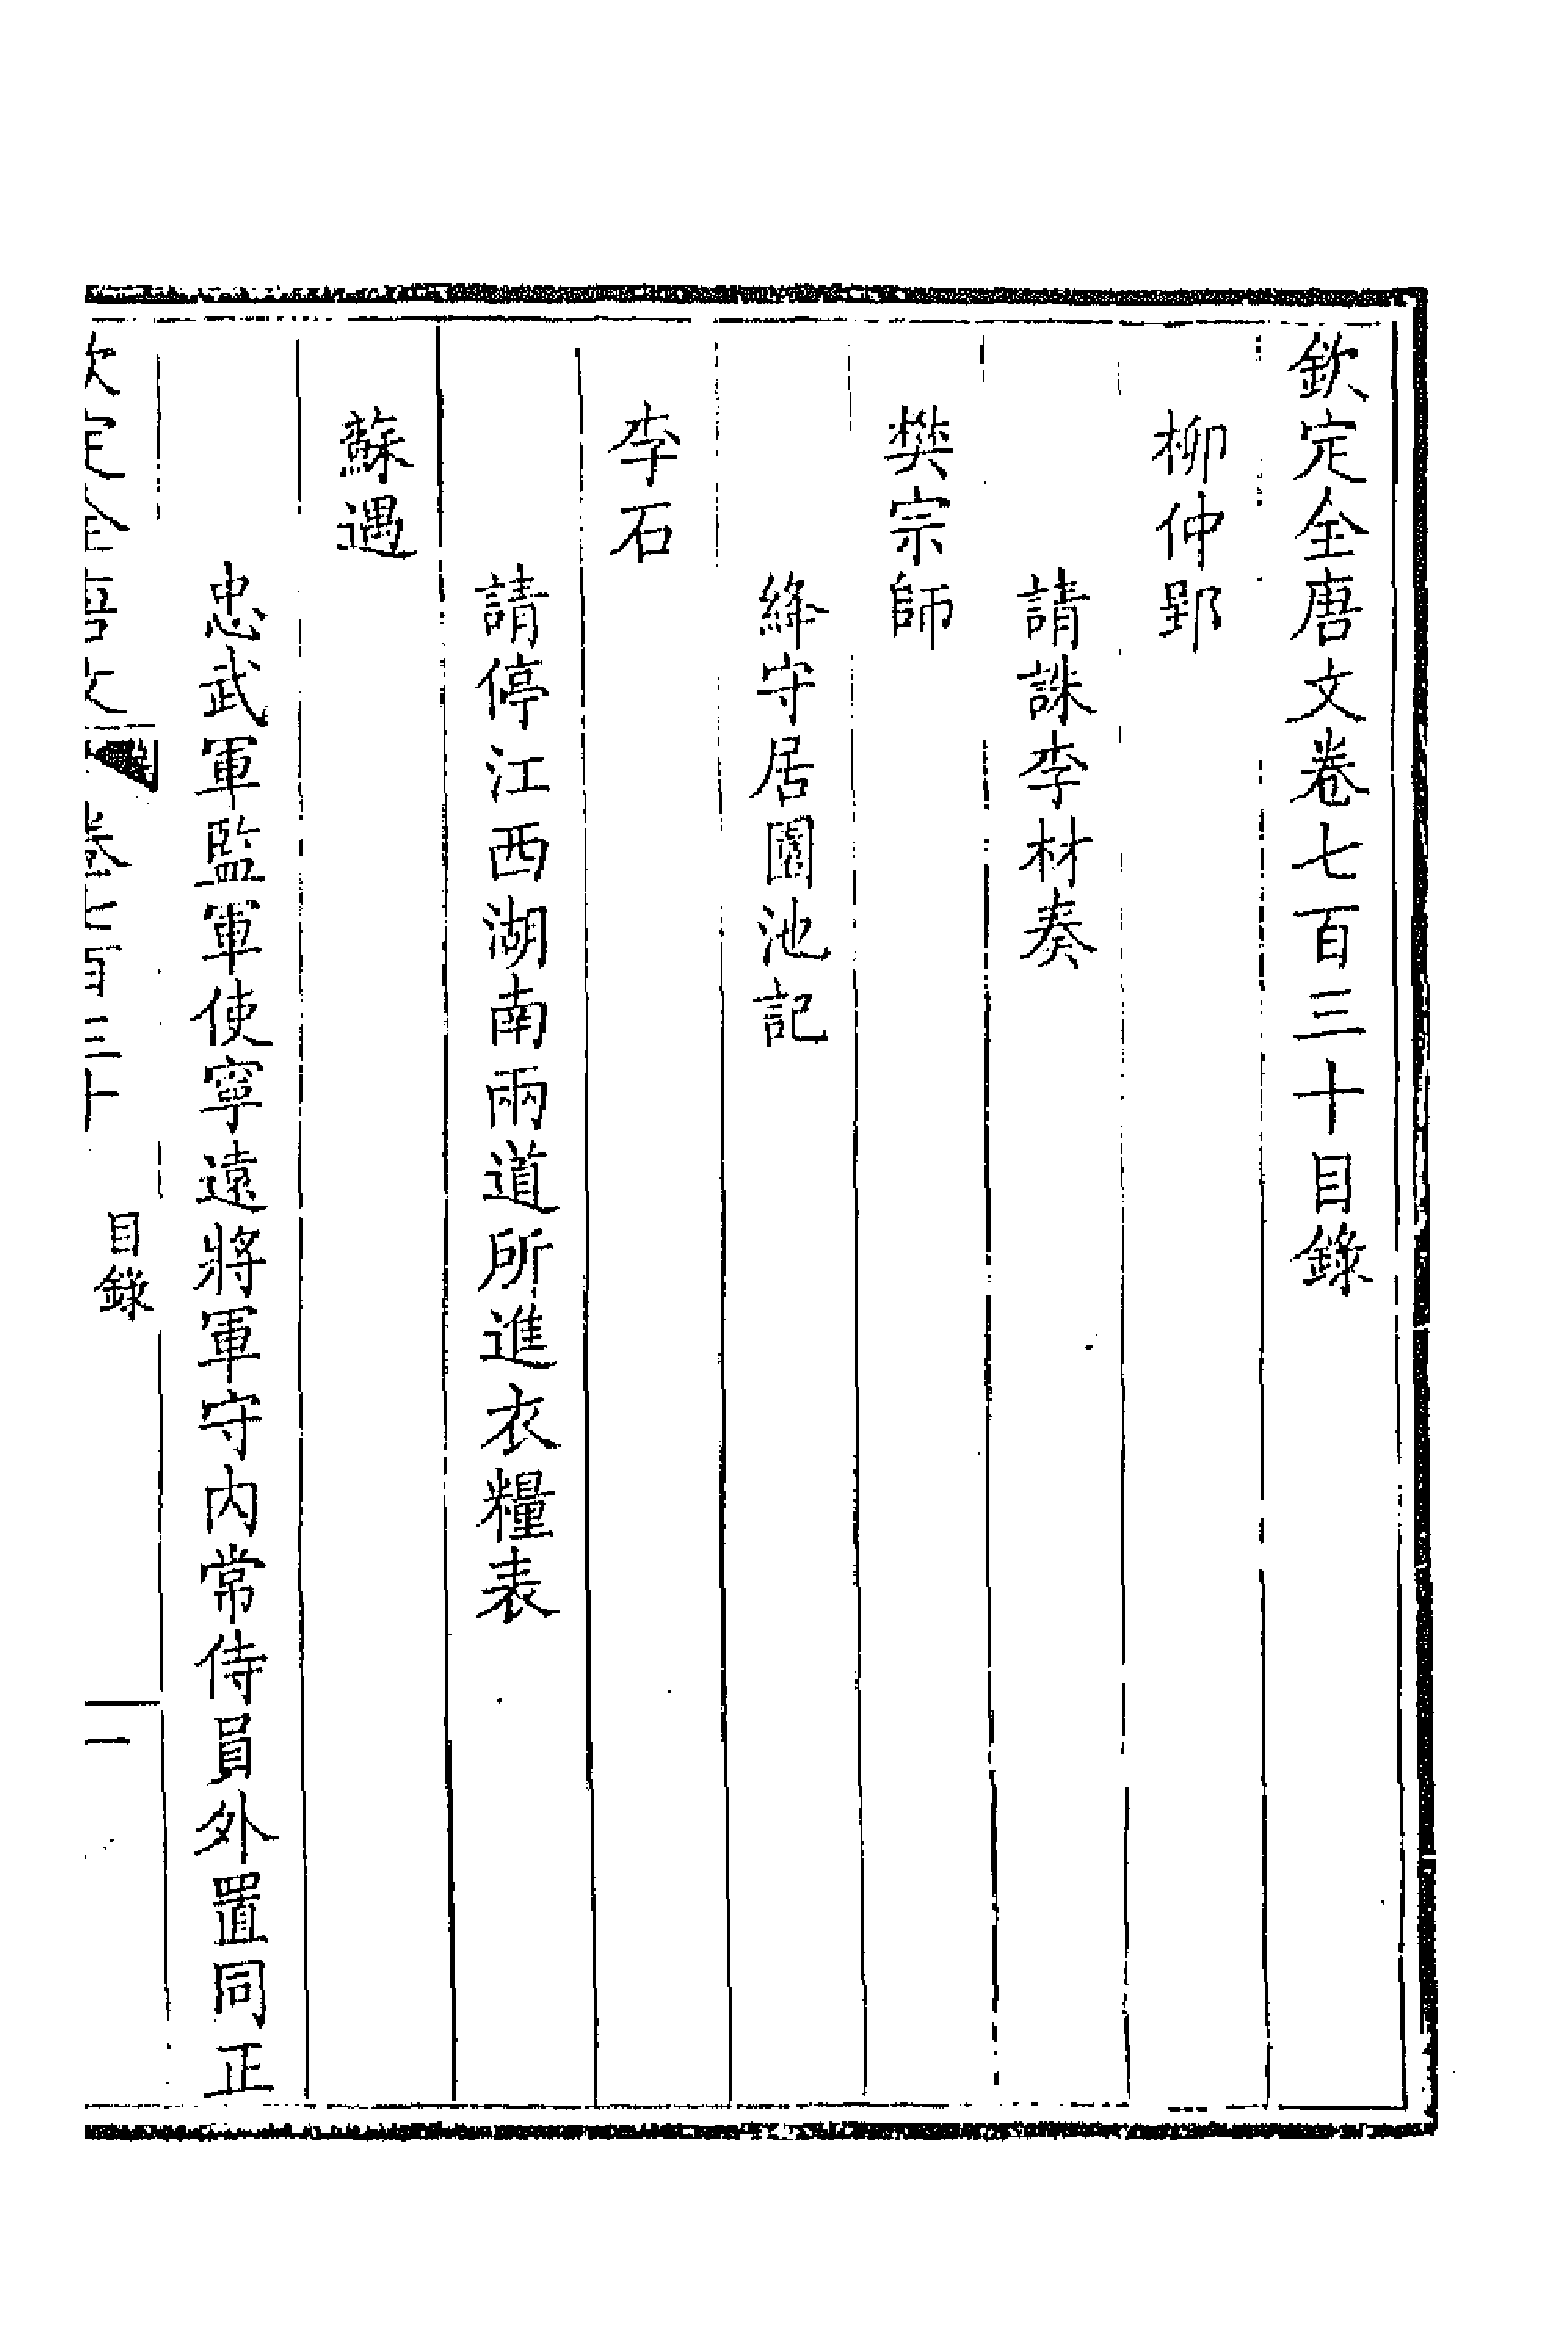 欽定全唐文卷七百三十目錄
柳仲郢
請誅李材奏
樊宗師
絳守居園池記
李石
請停江西湖南兩道所進衣糧表
蘇遇
忠武軍監軍使寧遠將軍守內常侍員外置同正
欽定全唐文 卷七百三十 目錄 一